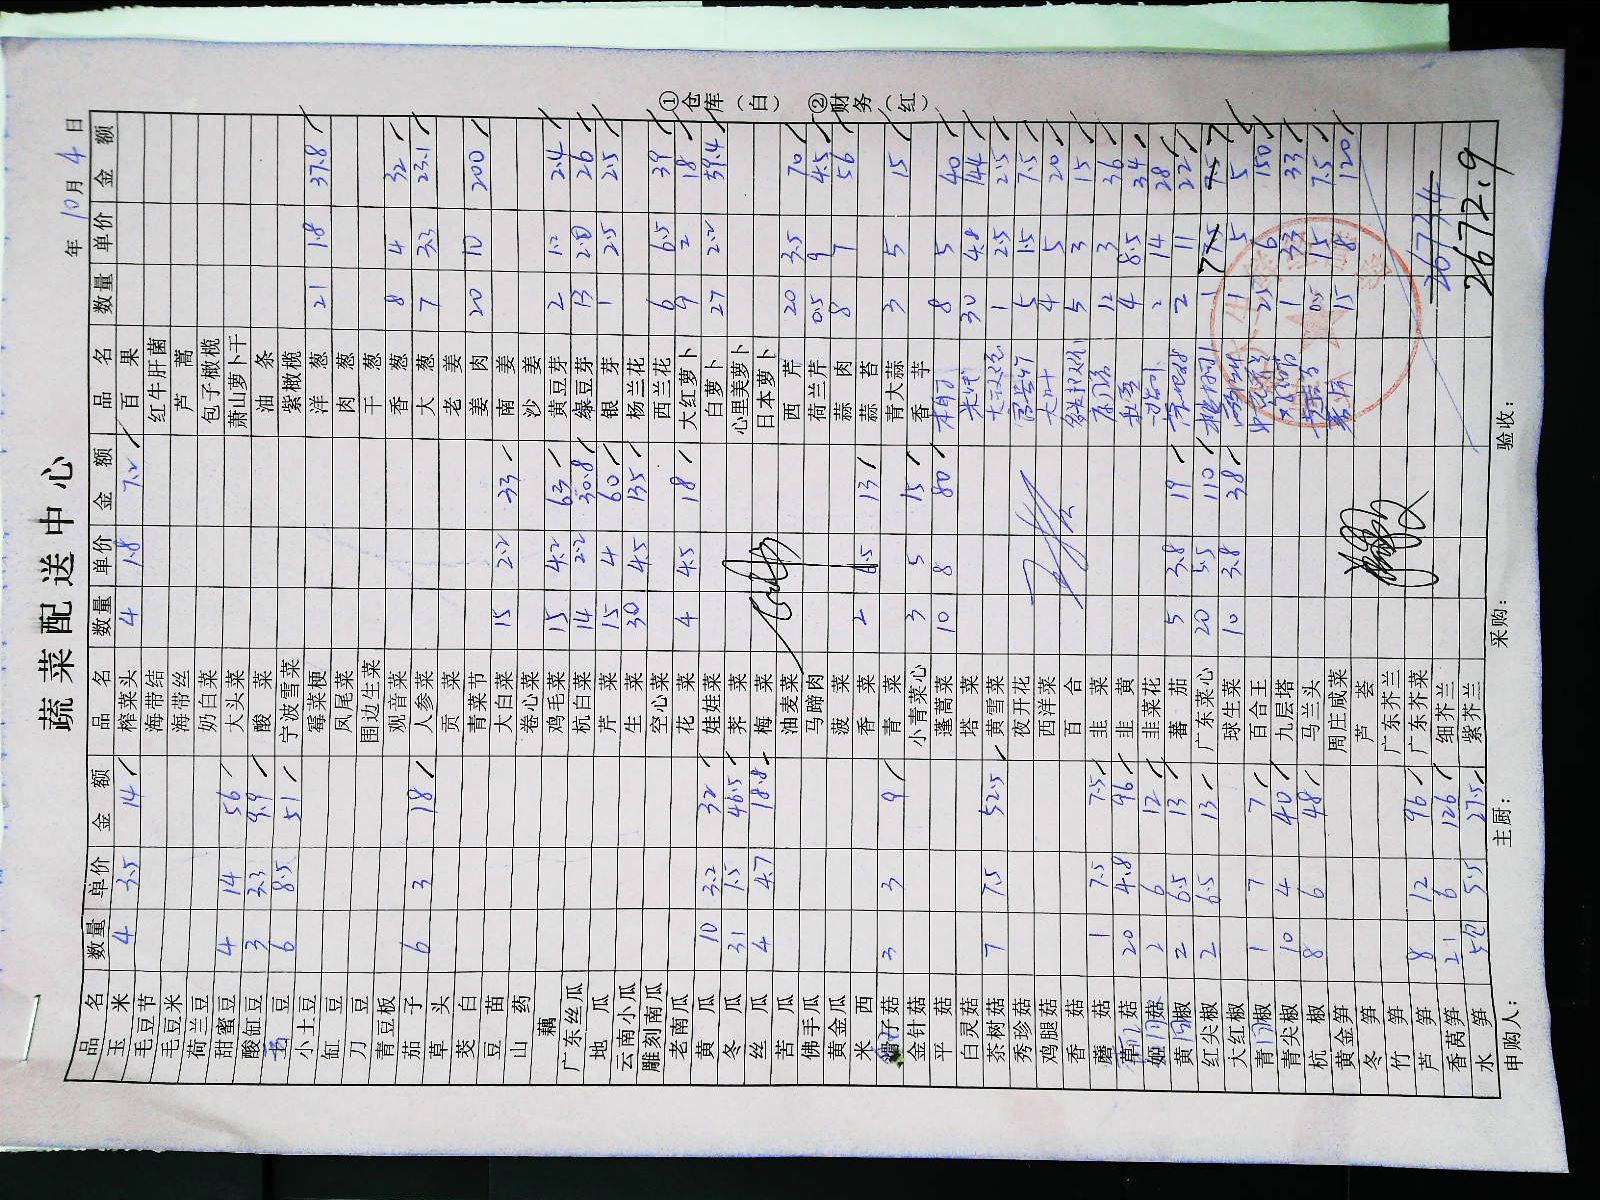 蔬菜配送中心
年 10月 4日
品名 数量 单价 金额 品名 数量 单价 金额 品名 数量 单价 金额
玉米 4 3.5 14 榨菜头 4 1.8 7.2 百果
毛豆节 海带结 红牛肝菌
毛豆米 海带丝 芦蒿
荷兰豆 奶白菜 包子橄榄
甜蜜豆 4 14 56 大头菜 萧山萝卜干
酸缸豆 3 3.3 9.9 酸菜 油条
豆 6 8.5 51 宁波雪菜 紫橄榄
小土豆 霉菜梗 洋葱 21 1.8 37.8
缸豆 凤尾菜 肉葱
刀豆 围边生菜 干葱
青豆板 观音菜 香葱 8 4 32
茄子 6 3 18 人参菜 大葱 7 3.3 23.1
草头 贡菜 老姜
茭白 青菜节 姜肉 20 10 200
豆苗 大白菜 15 2.2 33 南姜
山药 卷心菜 沙姜
藕 鸡毛菜 15 4.2 63 黄豆芽 2 1.2 2.4
广东丝瓜 杭白菜 14 2.2 30.8 绿豆芽 13 2.0 26
地瓜 芹菜 15 4 60 银芽 1 2.5 2.5
云南小瓜 生菜 30 4.5 135 杨兰花
雕刻南瓜 空心菜 西兰花 6 6.5 39
老南瓜 花菜 4 4.5 18 大红萝卜 9 2 18
黄瓜 10 3.2 32 娃娃菜 白萝卜 27 2.2 59.4
冬瓜 31 1.5 46.5 荠菜 心里美萝卜
丝瓜 4 4.7 18.8 梅菜 日本萝卜
苦瓜 油麦菜 西芹 20 3.5 70
佛手瓜 马蹄肉 荷兰芹 0.5 9 4.5
黄金瓜 菠菜 蒜肉 8 7 56
米西 香菜 2 6.5 13 蒜苔
滑子菇 3 3 9 青菜 青大蒜 3 5 15
金针菇 小青菜心 3 5 15 香芋
平菇 蓬蒿菜 10 8 80 8 5 40
白灵菇 塔菜 30 4.8 144
茶树菇 7 7.5 52.5 黄雪菜 1 2.5 2.5
秀珍菇 夜开花 5 1.5 7.5
鸡腿菇 西洋菜 大叶 4 5 20
香菇 百合 5 3 15
蘑菇 1 7.5 7.5 韭菜 12 3 36
草菇 20 4.8 96 韭黄 4 8.5 34
姬菇 2 6 12 韭菜花 2 14 28
黄椒 2 6.5 13 蕃茄 5 3.8 19 2 11 22
红尖椒 2 6.5 13 广东菜心 20 5.5 110 1 7 7
大红椒 球生菜 10 3.8 38 1 5 5
青椒 1 7 7 百合王 25 6 150
青尖椒 10 4 40 九层塔 1 33 33
杭椒 8 6 48 马兰头 0.5 15 7.5
黄金笋 周庄咸菜 15 8 120
冬笋 芦荟
竹笋 广东芥兰
芦笋 8 12 96 广东芥菜
香莴笋 21 6 126 细芥兰 2673.4
水笋 5包 5.5 27.5 紫芥兰 2672.9
申购人： 主厨： 采购： 验收：
①仓库（白） ②财务（红）